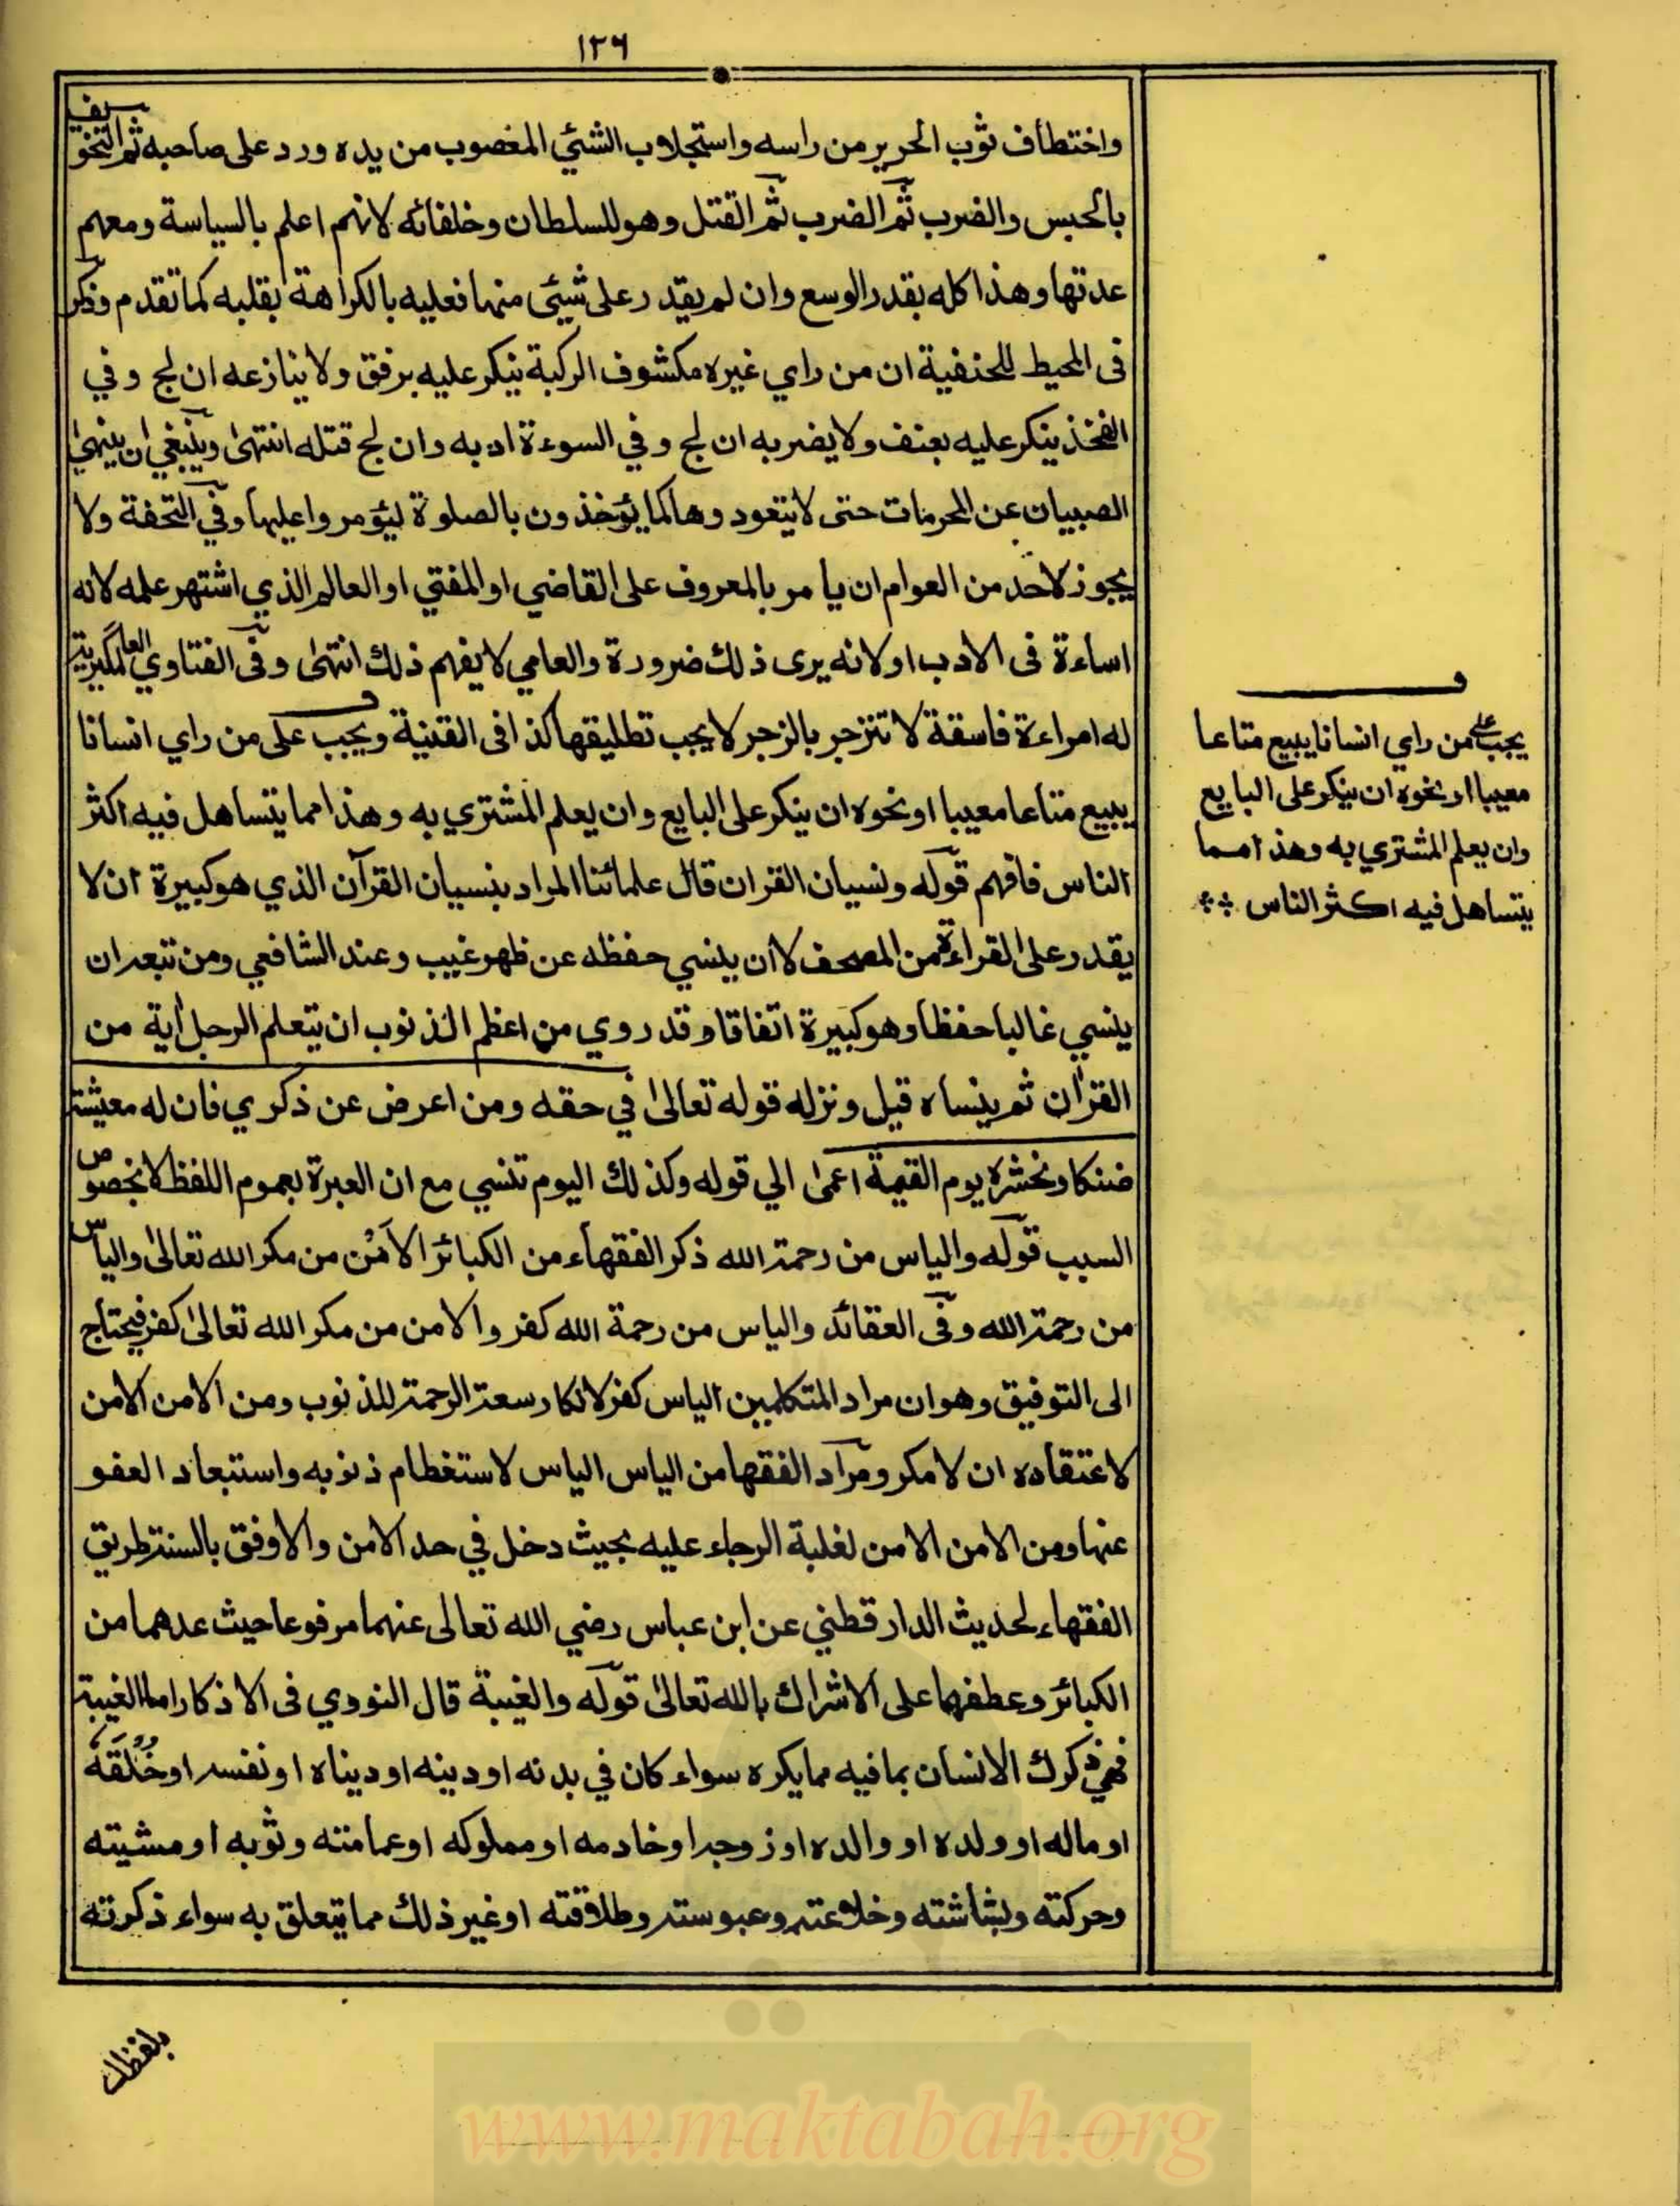 ١٢٦
واختطاف ثوب الحرير من راسه واستجلاب الشئي المغصوب من يده ورد على صاحبه ثم التخويف
بالحبس والضرب ثم الضرب ثم القتل وهو للسلطان وخلفائه لانهم اعلم بالسياسة ومعهم
عدتها وهذا كله بقدر الوسع وان لم يقدر على شيئ منها فعليه بالكراهة بقلبه كما تقدم وذكر
فى المحيط للحنفية ان من راي غيره مكشوف الركبة ينكر عليه برفق ولا ينازعه ان لج وفي
الفخذ ينكر عليه بعنف ولا يضربه ان لج وفي السوءة ادبه وان لج قتله انتهى وينبغي ان ينهى
الصبيان عن المحرمات حتى لا يتعودوها كما يؤخذون بالصلوة ليؤمروا عليها وفي التحفة ولا
يجوز لاحد من العوام ان يامر بالمعروف على القاضي او المفتي او العالم الذي اشتهر علمه لانه
اساءة فى الادب او لانه يرى ذلك ضرورة والعامي لا يفهم ذلك انتهى وفى الفتاوي العالمكيرية
له امراءة فاسقة لا تنزجر بالزجر لا يجب تطليقها كذا فى القنية ويجب على من راي انسانا
يبيع متاعا معيبا او نحوه ان ينكر على البايع وان يعلم المشتري به وهذا مما يتساهل فيه اكثر
الناس فافهم قوله ونسيان القران قال علمائنا المراد بنسيان القرآن الذي هو كبيرة ان لا
يقدر على القراءة من المصحف لا ان ينسي حفظه عن ظهر غيب وعند الشافعي ومن تبعه ان
ينسي غالبا حفظا وهو كبيرة اتفاقا وقد روي من اعظم الذنوب ان يتعلم الرجل أية من
القرأن ثم ينساه قيل ونزله قوله تعالى في حقه ومن اعرض عن ذكري فان له معيشة
ضنكا ونحشره يوم القيمة اعمى الي قوله وكذلك اليوم تنسي مع ان العبرة بعموم اللفظ لا بخصوص
السبب قوله والياس من رحمة الله ذكر الفقهاء من الكبائر الامن من مكر الله تعالى والياس
من رحمة الله وفى العقائد والياس من رحمة الله كفر والامن من مكر الله تعالى كفر فيحتاج
الى التوفيق وهو ان مراد المتكلمين الياس كفر لانكار سعة الرحمة للذنوب ومن الامن الامن
لاعتقاده ان لا مكر ومراد الفقها من الياس الياس لاستغظام ذنوبه واستبعاد العفو
عنها ومن الامن الامن لغلبة الرجاء عليه بحيث دخل في حد الامن والاوفق بالسنة طريق
الفقهاء لحديث الدار قطني عن ابن عباس رضي الله تعالى عنهما مرفوعا حيث عدهما من
الكبائر وعطفهما على الاشراك بالله تعالى قوله والغيبة قال النووي فى الاذكار اما الغيبة
فهي ذكرك الانسان بما فيه مما يكره سواء كان في بدنه او دينه او ديناه او نفسه او خلقه
او ماله او ولده او والده او زوجه او خادمه او مملوكه او عمامته وثوبه او مشيته
وحركته وبشاشته وخلاعته وعبوسته وطلاقته او غير ذلك مما يتعلق به سواء ذكرته
يجب على من راي انسانا يبيع متاعا
معيبا او نحوه ان ينكر على البايع
وان يعلم المشتري به وهذا مما
يتساهل فيه اكثر الناس
بلفظك
www.maktabah.org